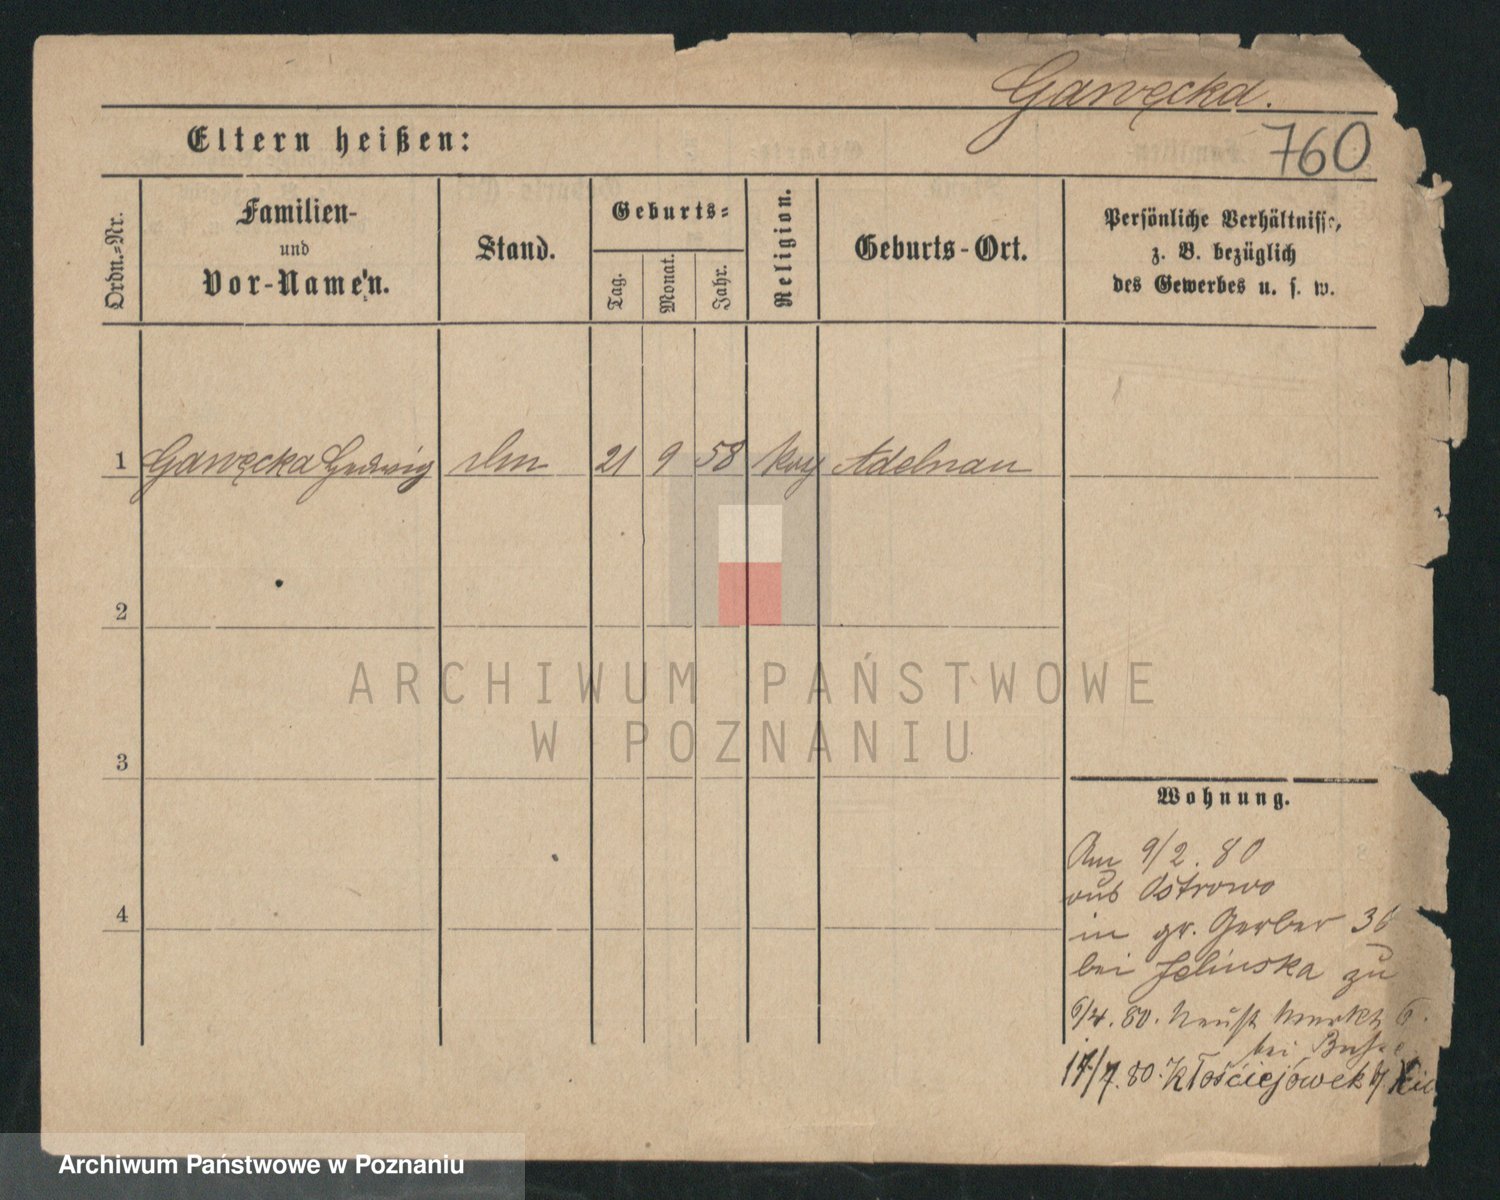 Gawęcka.
760
Eltern heißen:
Ordn.-Nr.
Familien-
und
Vor-Name'n.
Stand.
Geburts-
Tag.
Monat.
Jahr.
Religion.
Geburts-Ort.
Persönliche Verhältnisse,
z. B. bezüglich
des Gewerbes u. s. w.
1 Gawęcka Hedwig 21 9 58 Adelnau
2
3
4
Wohnung.
Am 9/2. 80
aus Ostrowo
in gr. Gerber 36
bei Jelinska zu
6/4. 80. Neust Markt 6.
bei
17/7. 80.
ARCHIWUM PAŃSTWOWE
W POZNANIU
Archiwum Państwowe w Poznaniu